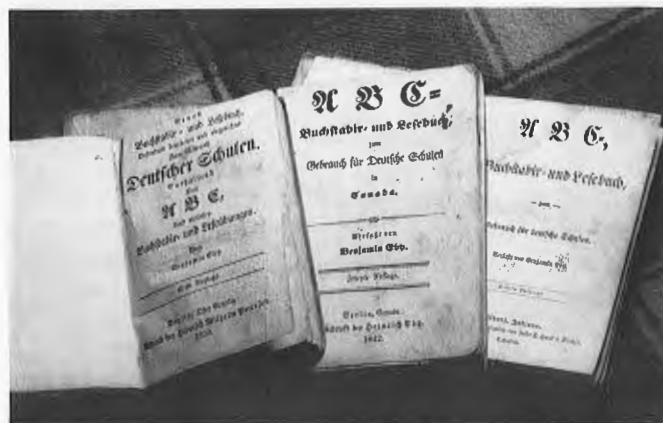 Neues
Buchstabir- und Lesebuch,
Deutscher Schulen,
Enthaltend
Das
A B C,
Buchstabir- und Leseübungen.
Von
Benjamin Eby.
A B C=
Buchstabir- und Lesebuch,
zum
Gebrauch für Deutsche Schulen
in
Canada.
Verfaßt von
Benjamin Eby.
Zweyte Auflage.
Berlin, Canada.
Gedruckt bey Heinrich Eby.
1842.
A B C-,
Buchstabir- und Lesebuch,
— zum —
Gebrauch für deutsche Schulen.
Verfaßt von Benjamin Eby.
Elkhart, Indiana.